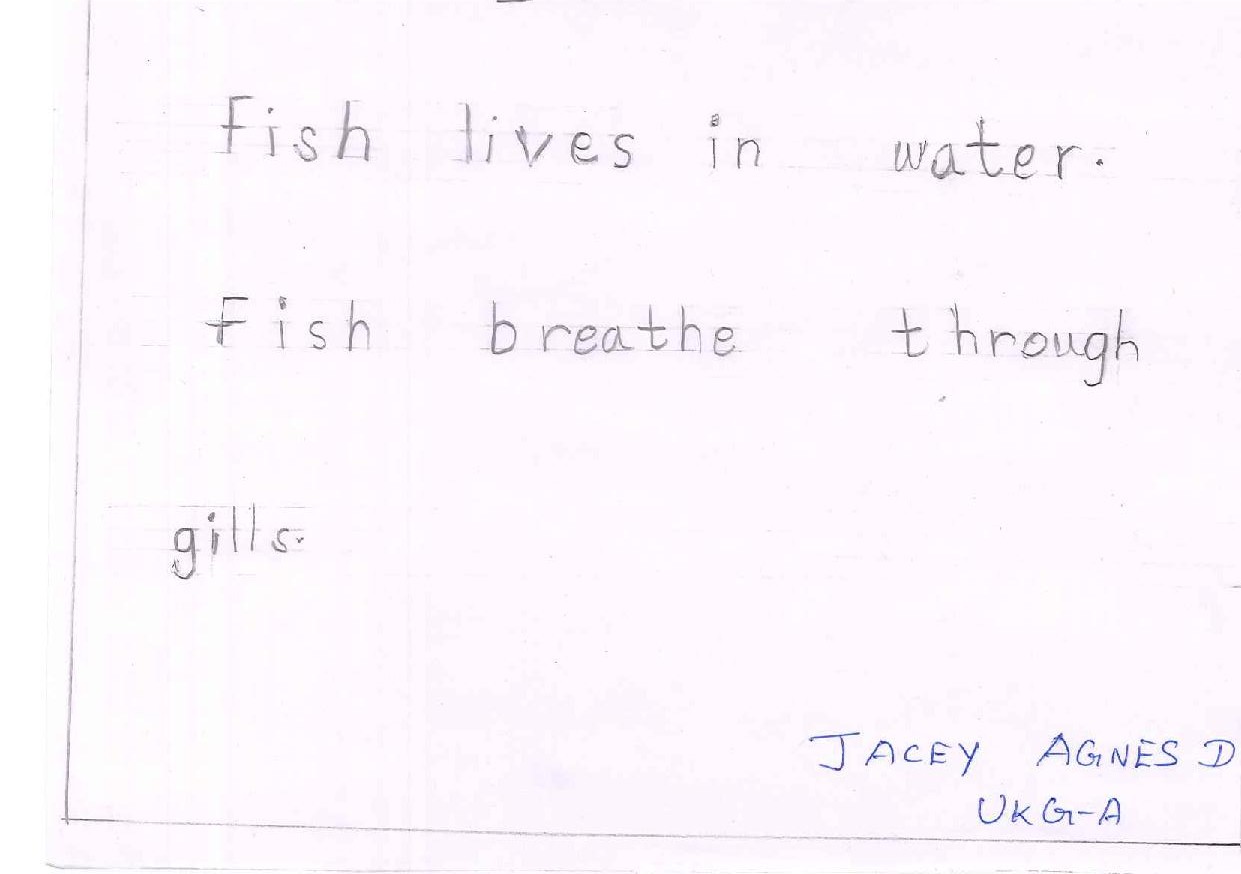 Fish lives in water.
Fish breathe through
gills.
JACEY AGNES D
UKG-A